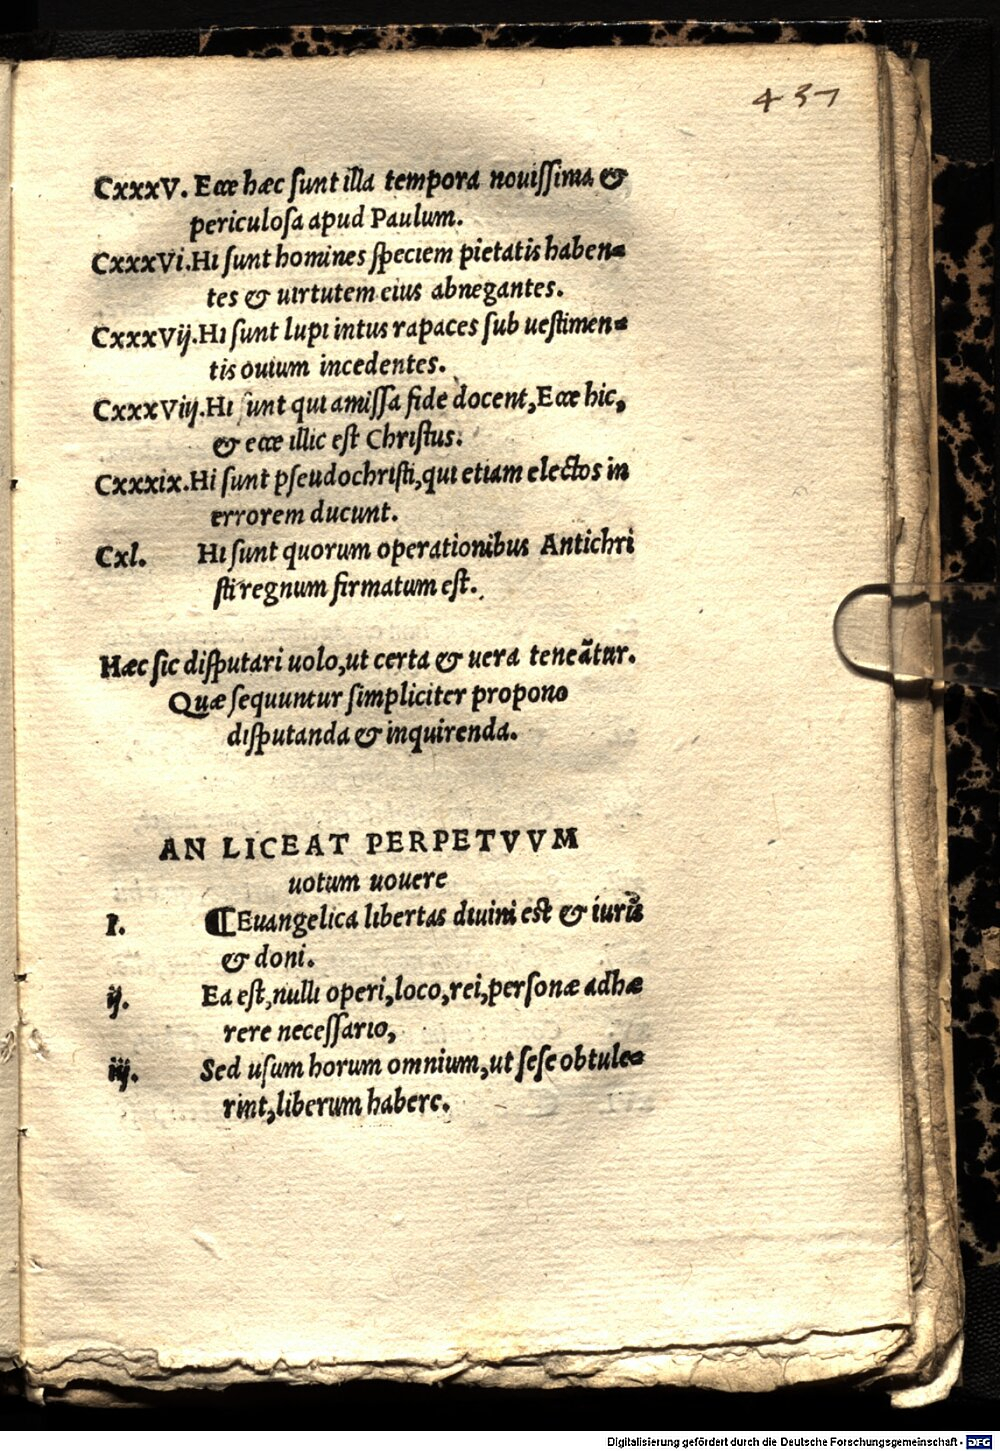 437
CxxxV. Ecce hæc ſunt illa tempora nouiſſima &
periculoſa apud Paulum.
CxxxVi. Hi ſunt homines ſpeciem pietatis haben=
tes & uirtutem eius abnegantes.
CxxxVij. Hi ſunt lupi intus rapaces ſub ueſtimen=
tis ouium incedentes.
CxxxViij. Hi ſunt qui amiſſa fide docent, Ecce hic,
& ecce illic eſt Chriſtus.
Cxxxix. Hi ſunt pſeudochriſti, qui etiam electos in
errorem ducunt.
Cxl. Hi ſunt quorum operationibus Antichri
ſti regnum firmatum eſt.
Hæc ſic diſputari uolo, ut certa & uera teneãtur.
Quæ ſequuntur ſimpliciter propono
diſputanda & inquirenda.
AN LICEAT PERPETVVM
uotum uouere
I. ¶ Euangelica libertas diuini eſt & iuris
& doni.
ij. Ea eſt, nulli operi, loco, rei, perſonæ adhæ
rere neceſſario,
iij. Sed uſum horum omnium, ut ſeſe obtule=
rint, liberum habere.
Digitalisierung gefördert durch die Deutsche Forschungsgemeinschaft - DFG